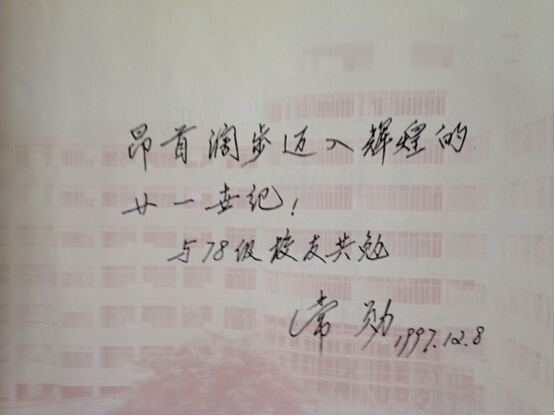 昂首阔步迈入辉煌的
廿一世纪！
与78级校友共勉
常勋 1997.12.8